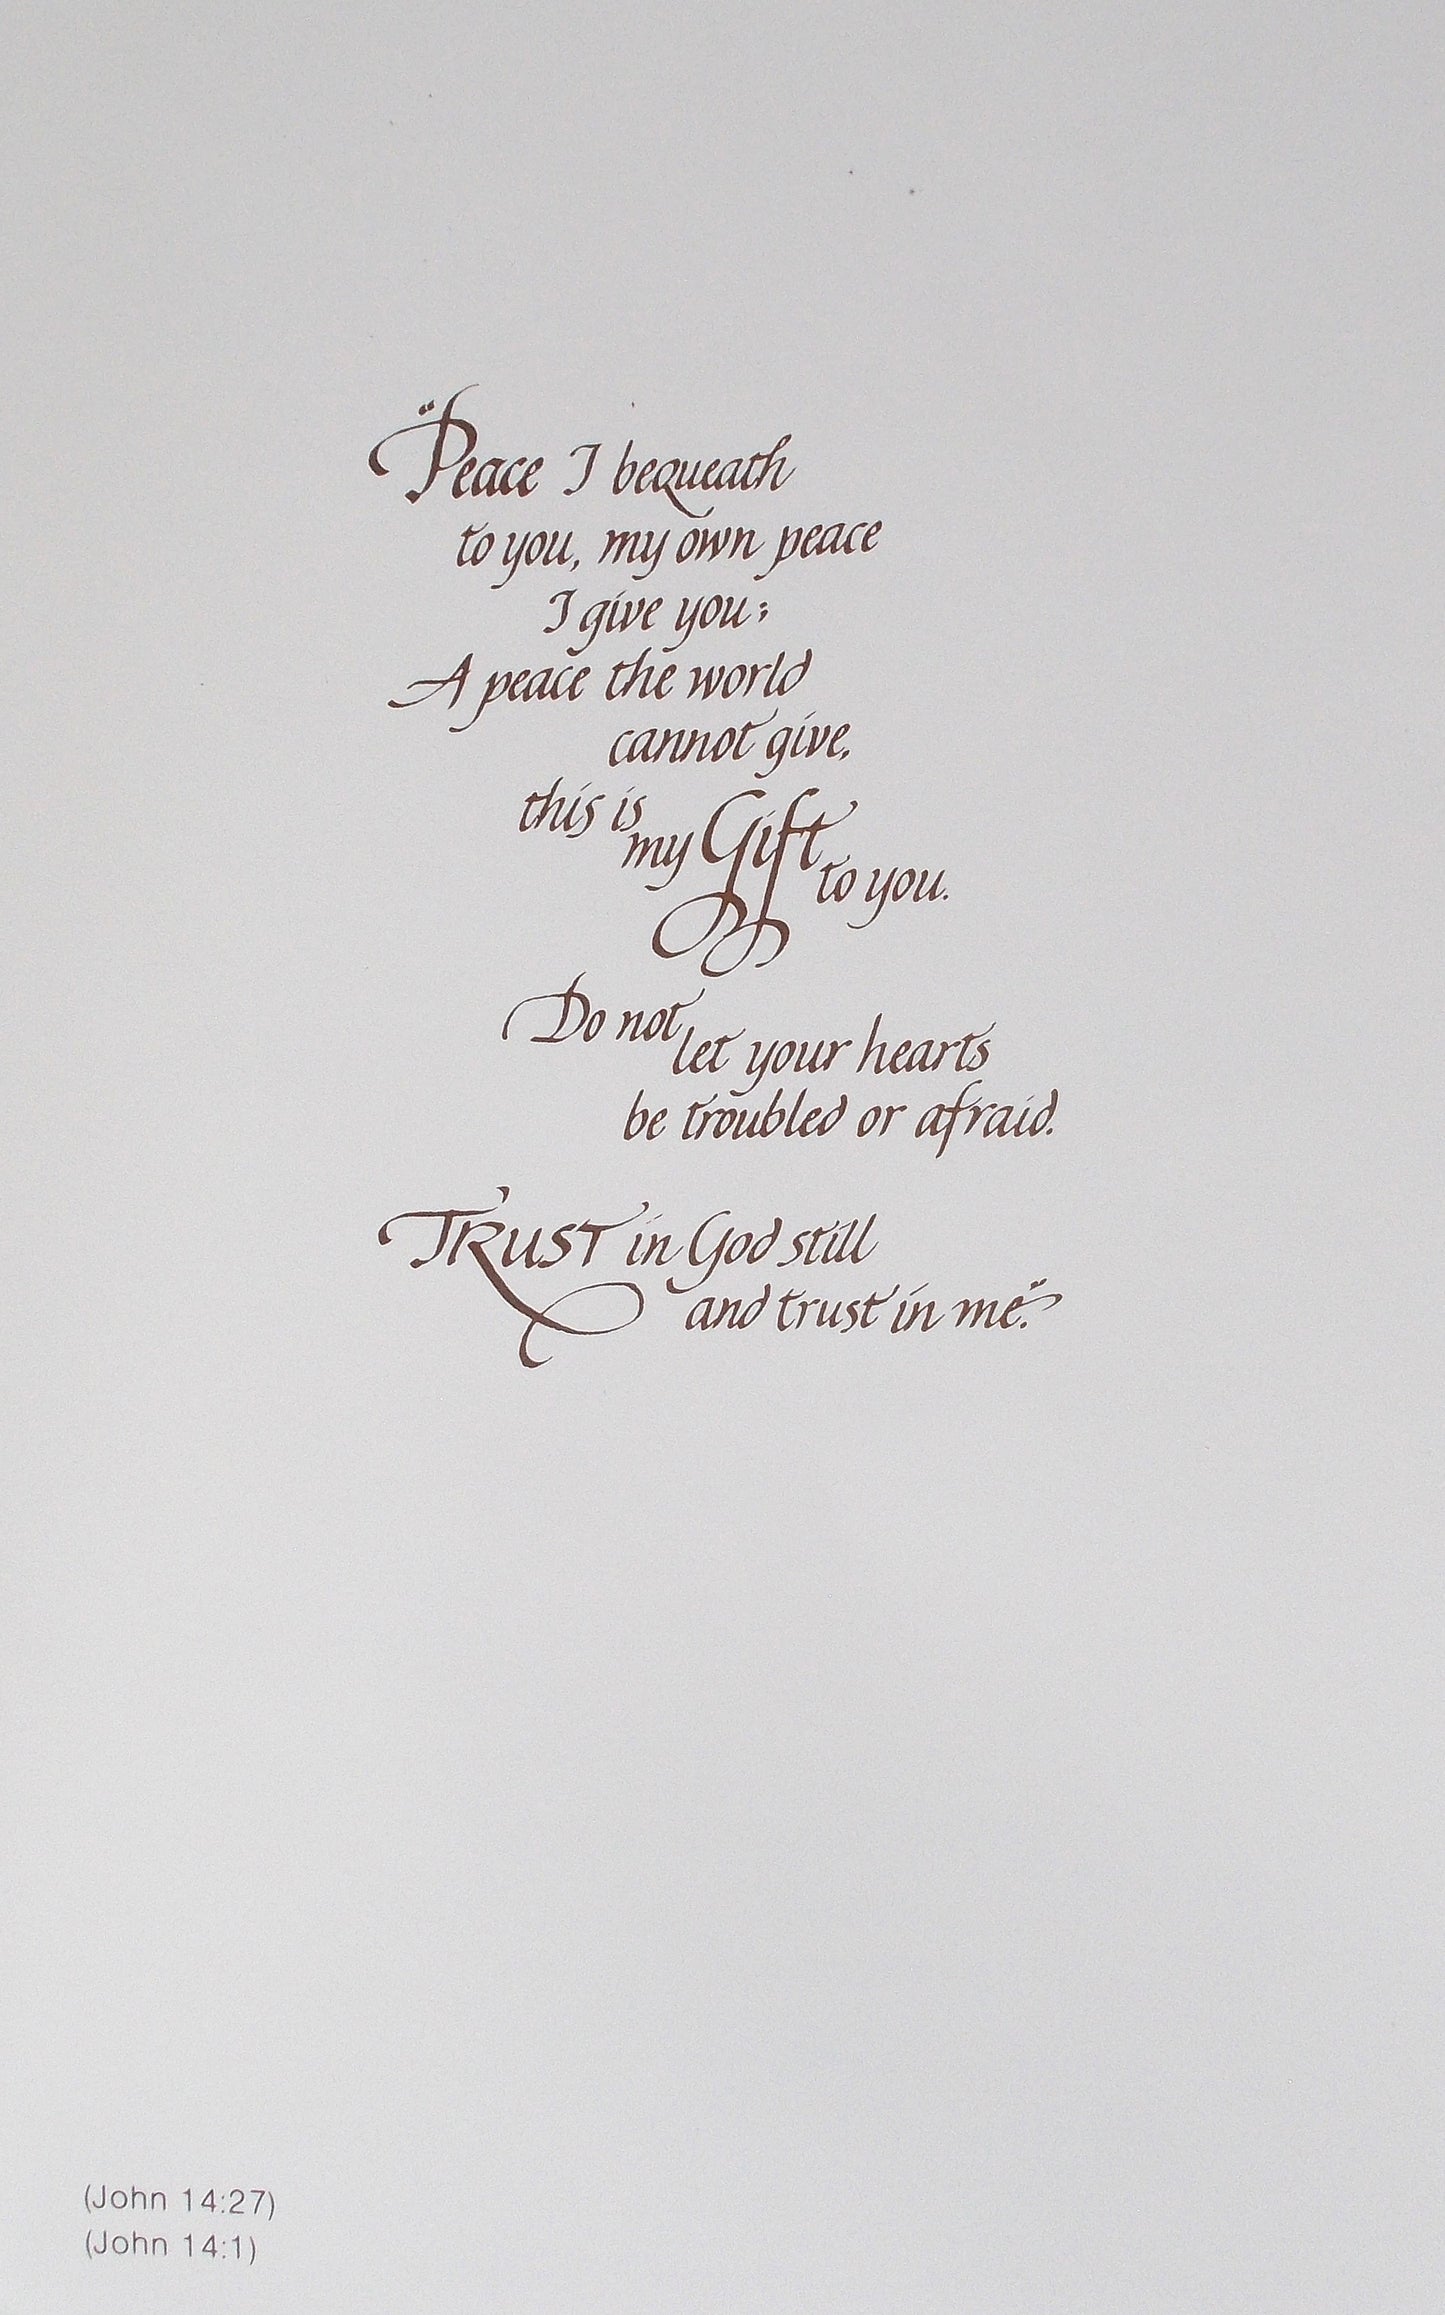 "Peace I bequeath
to you, my own peace
I give you;
A peace the world
cannot give,
this is
my Gift
to you.
Do not
let your hearts
be troubled or afraid.
TRUST in God still
and trust in me."
(John 14:27)
(John 14:1)